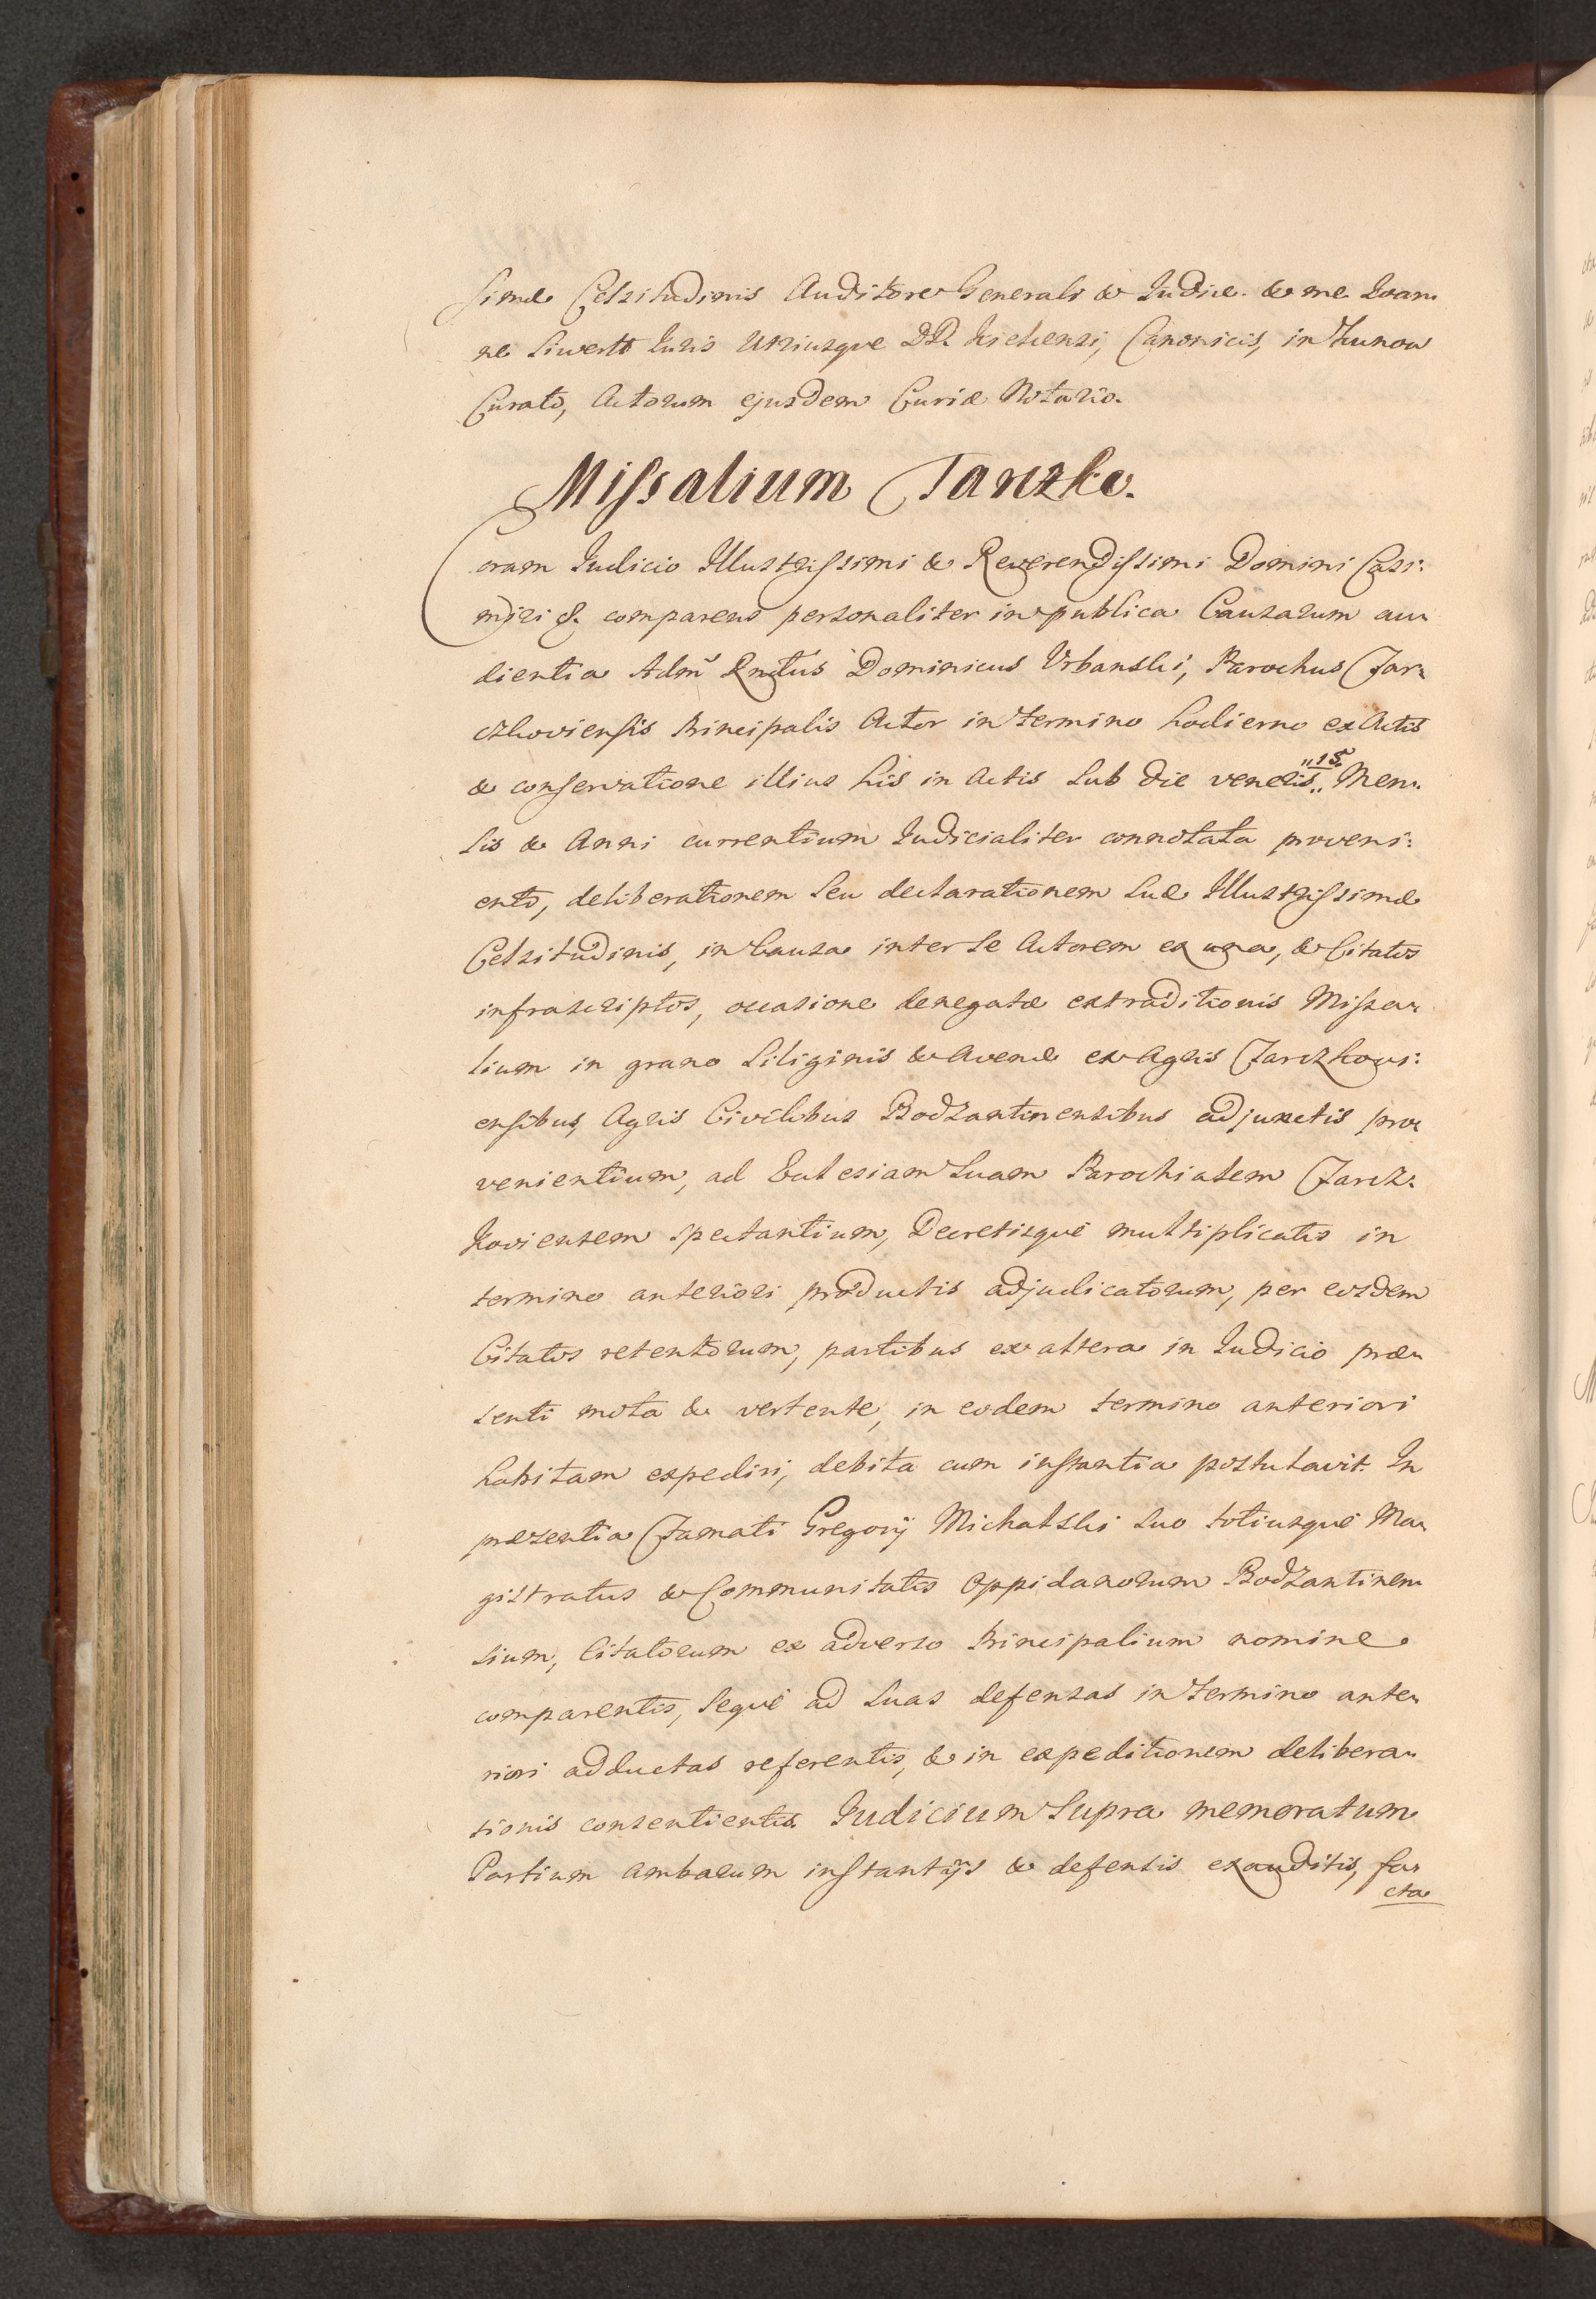 simæ Celsitudinis Auditore Generali & Judice & me Joan¬
ne Siwertt Juris Utriusque DR. Kielcensi, Canonicis, in Kunow
Curato, Actorum ejusdem Curiæ Notario.
Missalium Tarczko.
Coram Judicio Illustrissimi & Reverendissimi Domini Casi¬
miri &. comparens personaliter in publica Causarum au¬
dientia Adm̃ Rndus Dominicus Urbanski, Parochus Tar¬
czkoviensis Principalis Actor in termino hodierno ex Actis
& conservatione illius his in Actis sub die veneris „15. Men¬
sis & Anni currentium Judicialiter connotata proveni¬
ento, deliberationem seu declarationem suæ Illustrissimæ
Celsitudinis, in Causa inter se Actorem ex una, & Citatos
infrascriptos, occasione denegatæ extraditionis Missa¬
lium in grano siliginis & avenæ ex Agris Tarczkovi¬
ensibus, Agris Civilibus Bodzantinensibus adjunctis pro¬
venientium, ad Ecclesiam suam Parochialem Tarcz¬
koviensem spectantium, Decretisque multiplicatis in
termino anteriori productis adjudicatorum, per eosdem
Citatos retentorum, partibus ex altera in Judicio præ¬
senti mota & vertente, in eodem termino anteriori
habitam expediri, debita cum instantia postulavit. In
præsentia Famati Gregorij Michalski suo totiusque Ma¬
gistratus & Communitatis Oppidanorum Bodzantinen¬
sium, Citatorum ex adverso Principalium nomine
comparentis, seque ad suas defensas in termino ante¬
riori adductas referentis, & in expeditionem delibera¬
tionis consentientis. Judicium supra memoratum
Partium ambarum instantijs & defensis exauditis, fa¬
cta